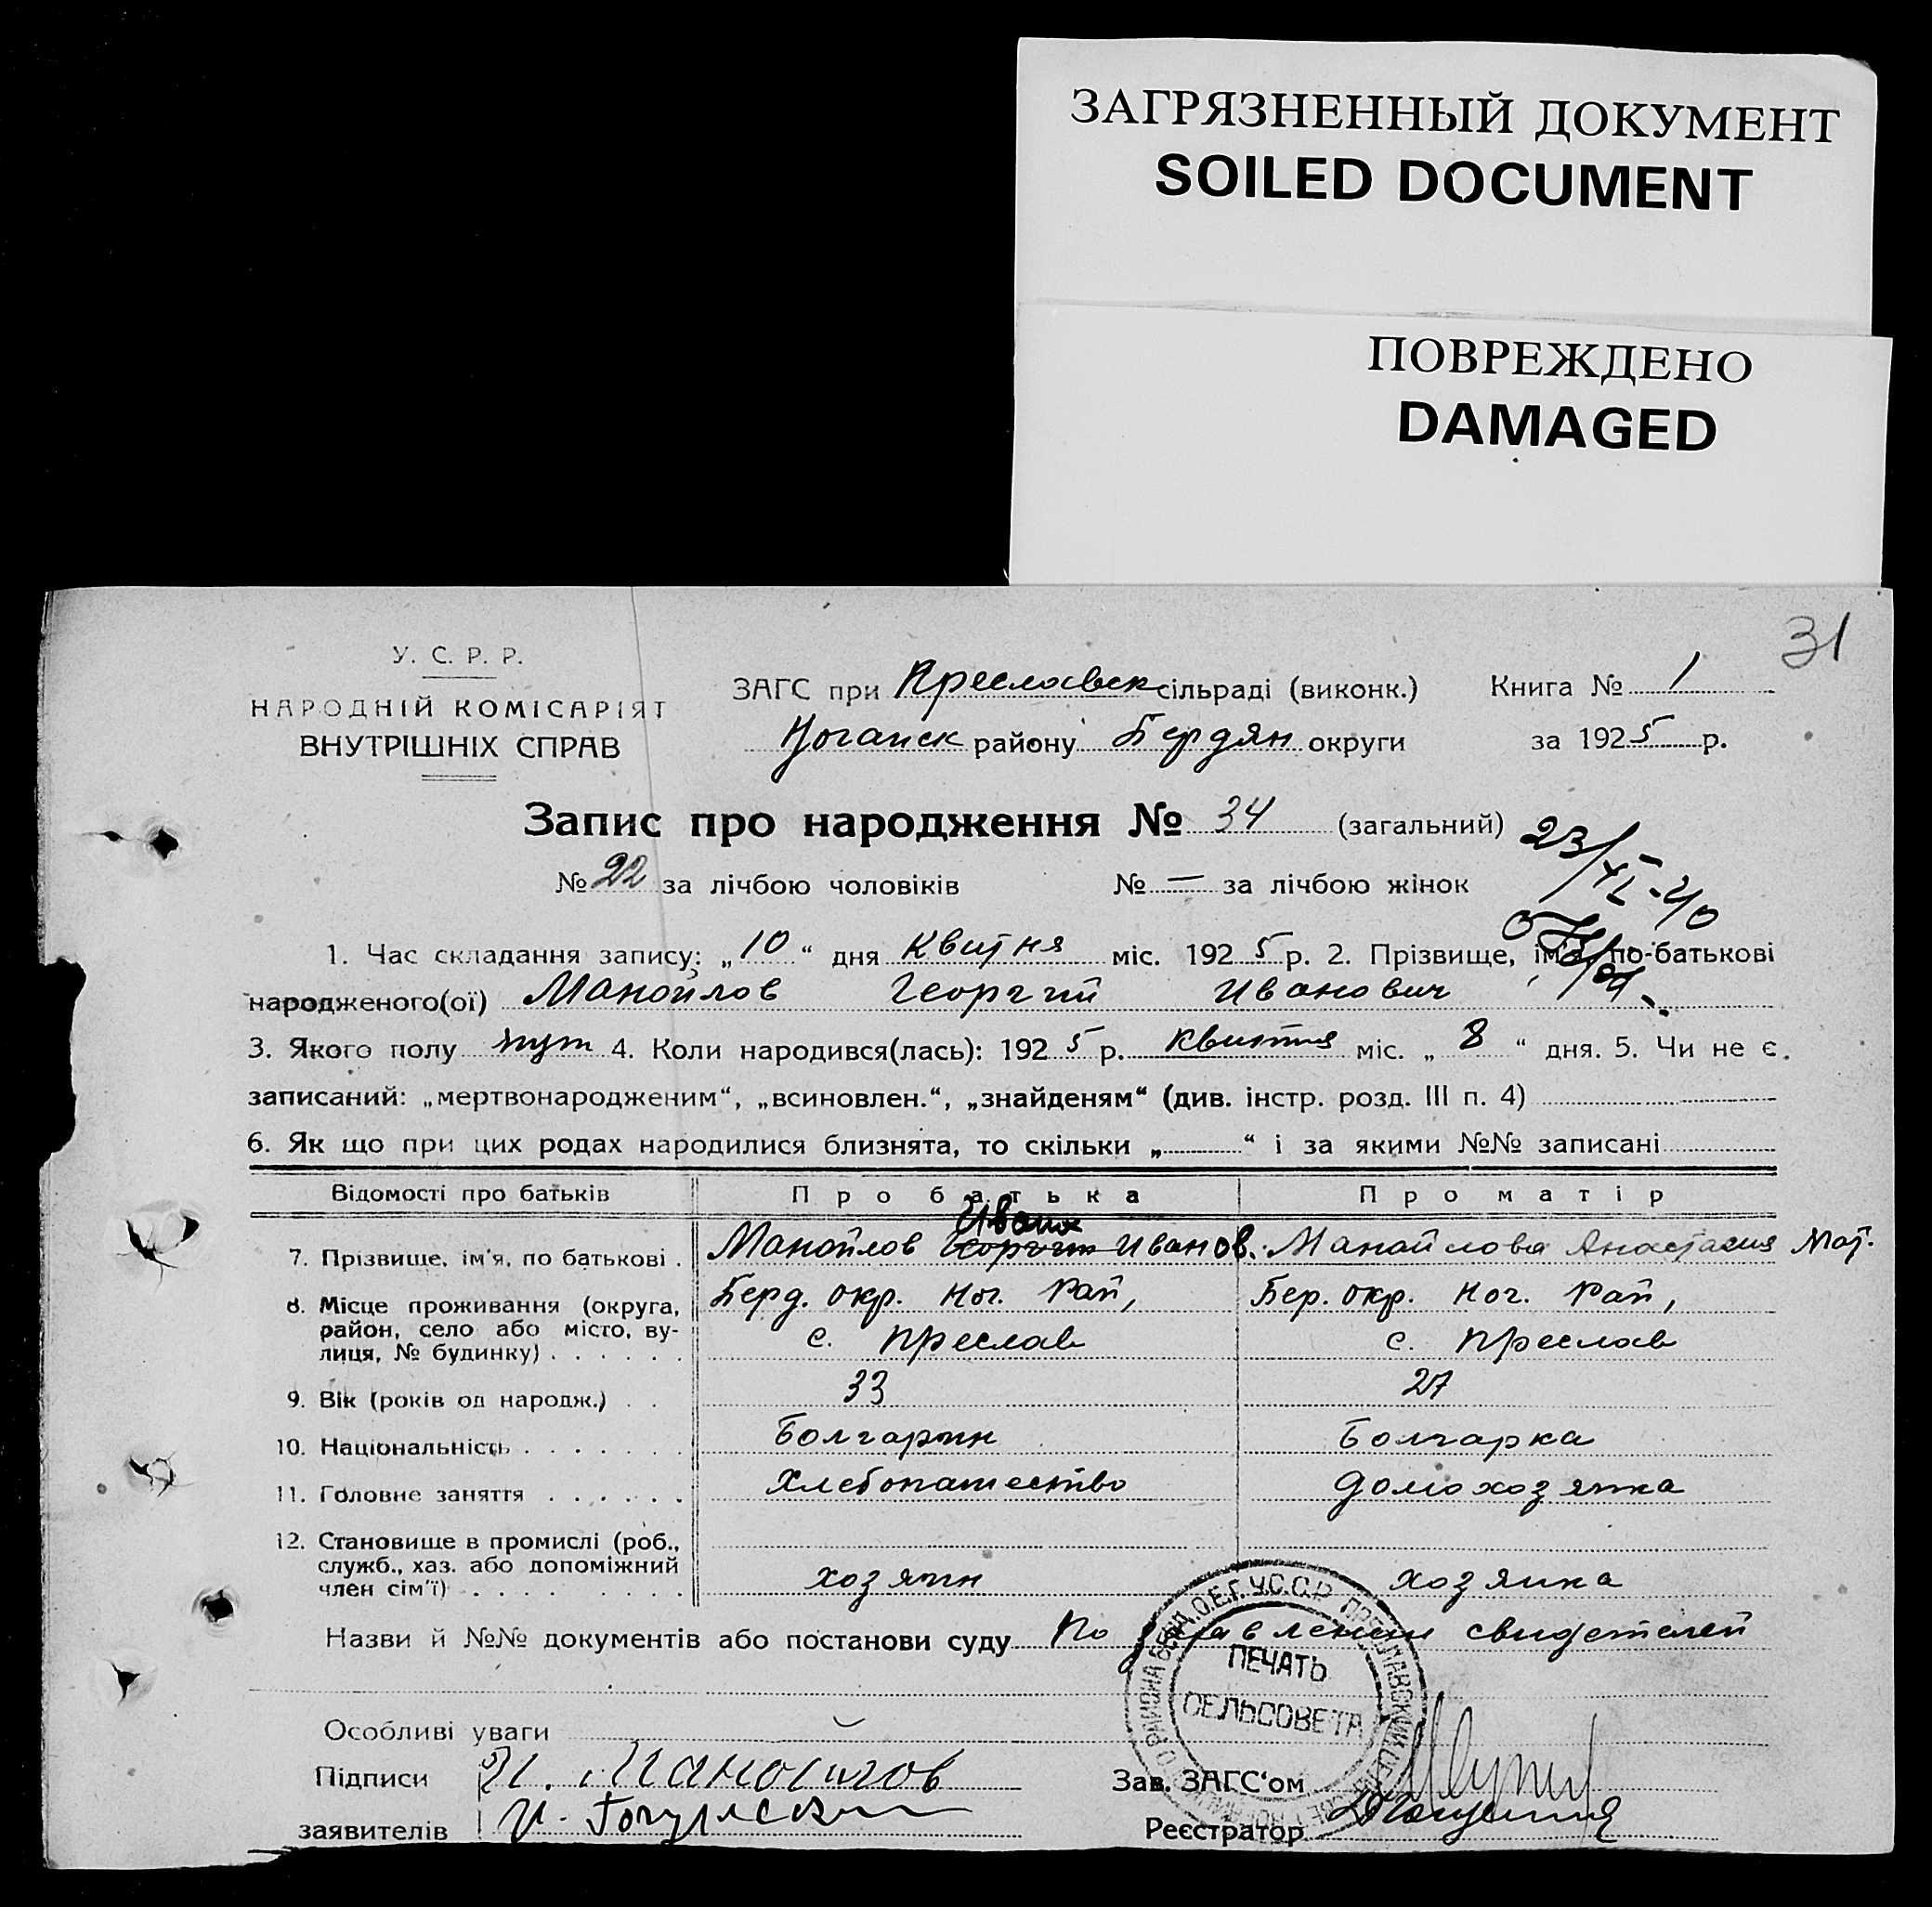 ЗАГРЯЗНЕННЫЙ ДОКУМЕНТ
SOILED DOCUMENT
ПОВРЕЖДЕНО
DAMAGED
31
У. С. Р. Р.
НАРОДНІЙ КОМІСАРІЯТ
ВНУТРІШНІХ СПРАВ
ЗАГС при Преславск сільраді (виконк.) Книга № 1
Ногайск району Бердян округи за 1925 р.
Запис про народження № 34 (загальний)
23/XI-40
№ 22 за лічбою чоловіків № — за лічбою жінок
1. Час складання запису: „10“ дня Квитня міс. 1925 р. 2. Прізвище, ім'я, по-батькові
народженого(ої) Манойлов Георгий Иванович
3. Якого полу 4. Коли народився(лась): 1925 р. Квитня міс. „8“ дня. 5. Чи не є
записаний: „мертвонародженим“, „всиновлен.“, „знайденям“ (див. інстр. розд. III п. 4)
6. Як що при цих родах народилися близнята, то скільки „ “ і за якими №№ записані
Відомості про батьків Про батька Про матір
7. Прізвище, ім'я, по батькові . Манойлов Георгий Иван Иванов. Манойлова Анастасия Мат.
8. Місце проживання (округа, район, село або місто, вулиця, № будинку) . . . . . . Берд. окр. Ног. Рай, с. Преслав Бер. окр. Ног. Рай, с. Преслав
9. Вік (років од народж.) . . 33 27
10. Національність . . . . . . . Болгарин Болгарка
11. Головне заняття . . . . . . Хлебопашество домохозяйка
12. Становище в промислі (роб., служб., хаз. або допоміжний член сім'ї) . . . . . . . хозяин хозяйка
Назви й №№ документів або постанови суду По заявлении свидетелей
ПЕЧАТЬ
СЕЛЬСОВЕТА
Особливі уваги —
Підписи И. Манойлов Зав. ЗАГС'ом
заявителів И. Реєстратор